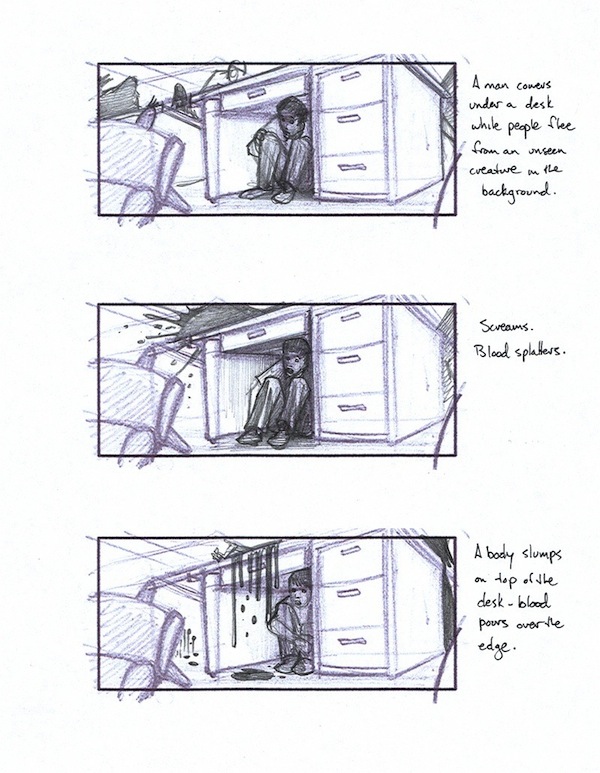 A man cowers
under a desk
while people flee
from an unseen
creature in the
background.
Screams.
Blood splatters.
A body slumps
on top of the
desk - blood
pours over the
edge.